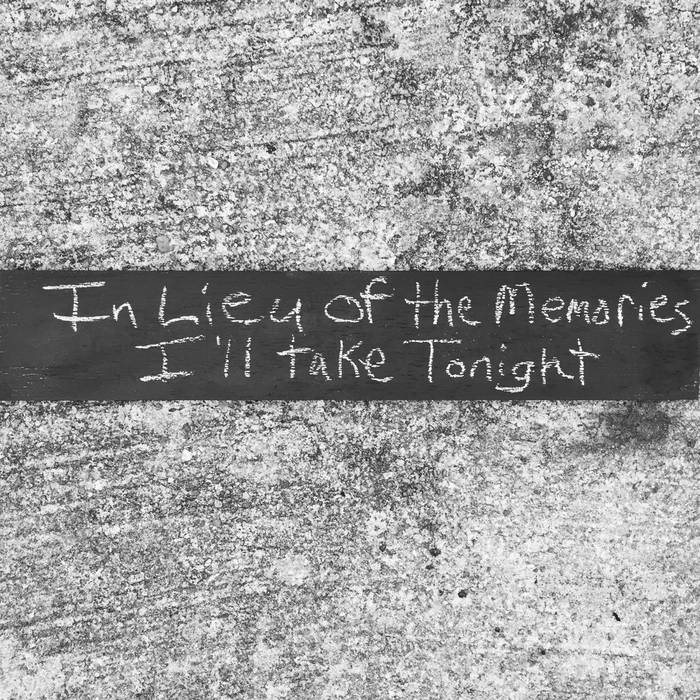 In Lieu of the Memories
I'll take Tonight